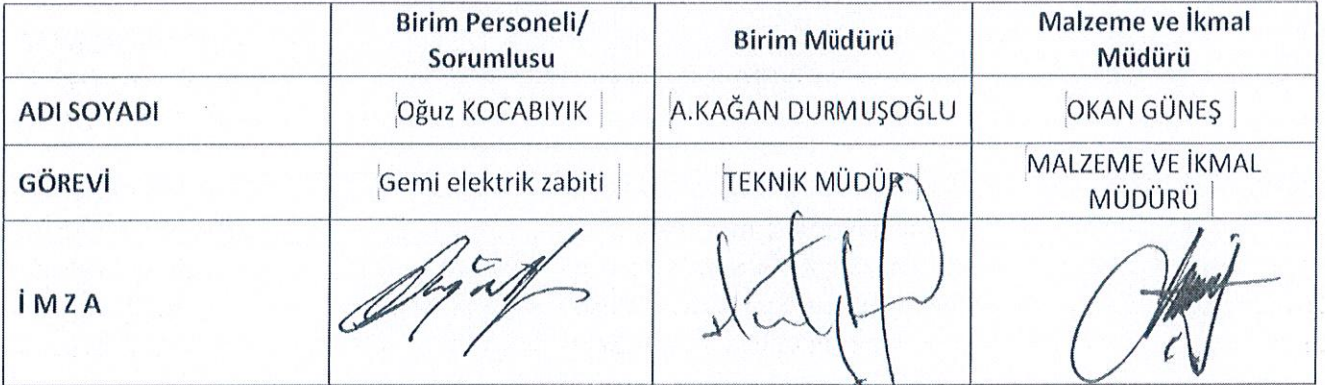 Birim Personeli/
Sorumlusu
Birim Müdürü
Malzeme ve İkmal
Müdürü
ADI SOYADI
Oğuz KOCABIYIK
A.KAĞAN DURMUŞOĞLU
OKAN GÜNEŞ
GÖREVİ
Gemi elektrik zabiti
TEKNİK MÜDÜR
MALZEME VE İKMAL
MÜDÜRÜ
İ M Z A